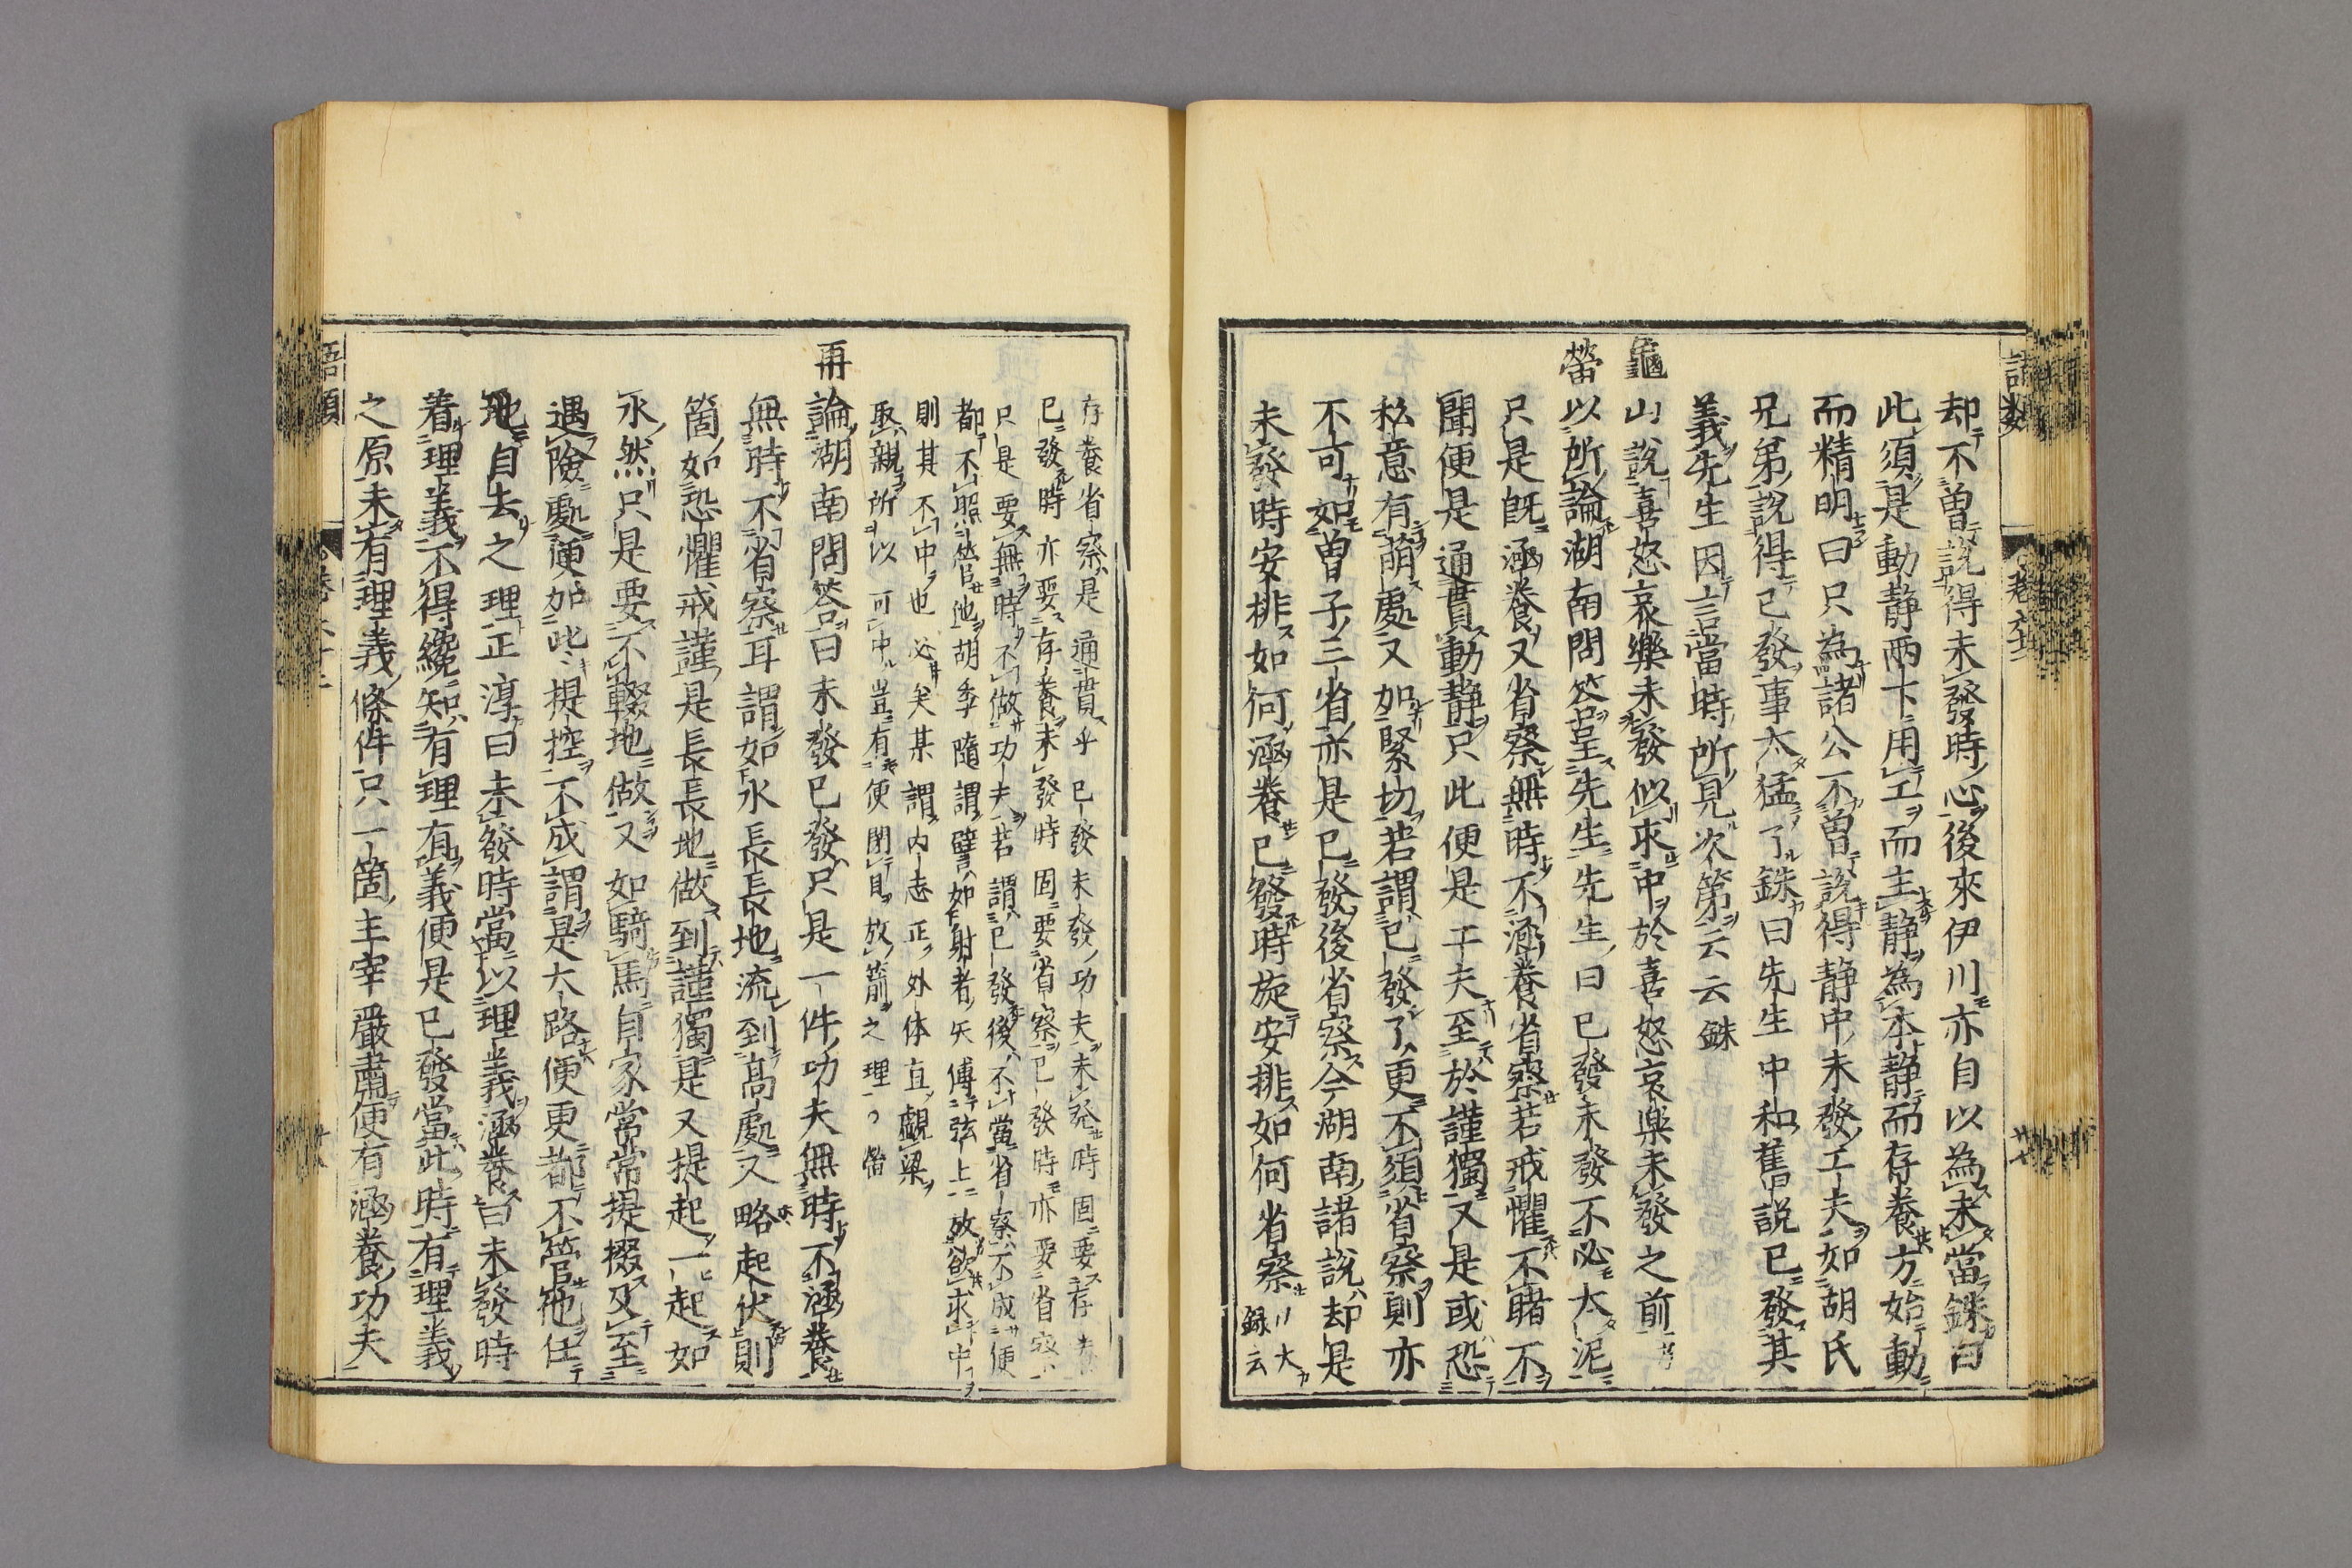 却不曽說得未發時心後來伊川亦自以為未當銖曰
此須是動静兩下用工而主静為本静而存養方始動
而精明曰只為諸公不曽說得静中未發工夫如胡氏
兄弟說得已發事太猛了銖曰先生中和舊說已發其
義先生因言當時所見次第云云銖
龜山說喜怒哀樂未發似求中於喜怒哀樂未發之前
䕫以所論湖南問答呈先生先生曰已發未發不必大泥
只是既涵養又省察無時不涵養省察若戒懼不睹不
聞便是通貫動静只此便是工夫至於謹獨又是或恐
私意有萌處又加緊切若謂已發了更不須省察則亦
不可如曽子三省亦是已發後省察今湖南諸說却是
未發時安排如何涵養已發時旋安排如何省察
大
録云
存養省察是通貫乎已發未發功夫未發時固要存養
已發時亦要存養未發時固要省察已發時亦要省察
只是要無時不做功夫若謂已發後不當省察不成便
都不照管他胡季隨謂譬如射者矢傅弦上放欲求中
則其不中也必矣某謂内志正外体直覷梁
取親所以可中豈有便閉目放箭之理
再論湖南問答曰未發已發只是一件功夫無時不涵養
無時不省察耳謂如水長長地流到高處又略起伏則
箇如恐懼戒謹是長長地做到謹獨是又提起一起如
水然只是要不輟地做又如騎馬自家常常提掇及至
遇險處便加此提控不成謂是大路便更都不管他任
地自去之理正淳曰未發時當以理義涵養曰未發時
着理義不得纔知有理有義便是已發當此時有理義
之原未有理義條件只一箇主宰嚴肅便有涵養功夫
語類